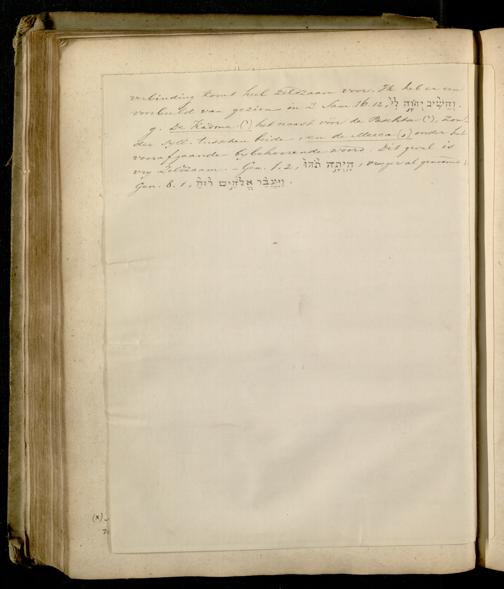 verbinding komt heel zeldzaam voor. Ik heb er een
voorbeeld van gezien in 2 Sam. 16.12, וְהֵשִׁיב יְהוָה לִי.
g. De Kadma (') het naast vóór de Paschta ('), zon-
der syll. tusschen beide, en de Mercca (,) onder het
voorafgaande bijbehoorende woord. Dit geval is
vrij zeldzaam. – Gen. 1.2, הָיְתָה תֹהוּ,
Gen. 8.1, וַיַּעֲבֵר אֱלֹהִים רוּחַ.
(x)